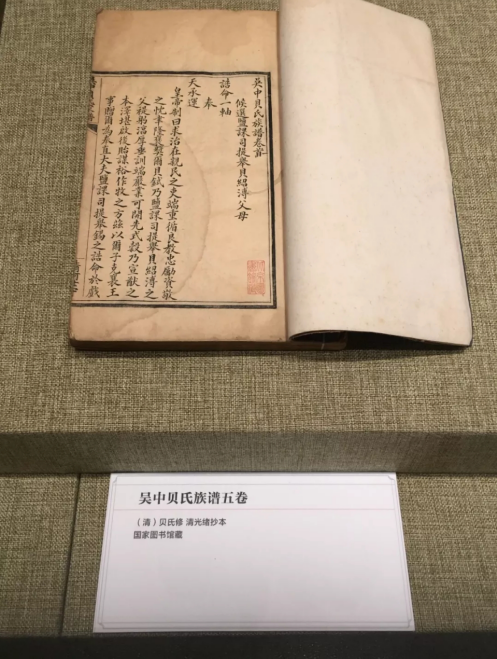 吴中贝氏族譜卷首
候選鹽課司提舉貝紹溥父母
誥命一軸
奉
天承運
皇帝制曰求治在親民之吏端重循良教忠勵資敬
之忱聿隆褒獎爾貝鋱乃鹽課司提舉貝紹溥之
父禔躬淳厚垂訓端嚴業可開先式穀乃宣猷之
本澤堪啟後貽謀裕作牧之方茲以爾子克襄王
事贈爾為奉直大夫鹽課司提舉錫之誥命於戲
吴中贝氏族谱五卷
（清）贝氏修 清光绪抄本
国家图书馆藏